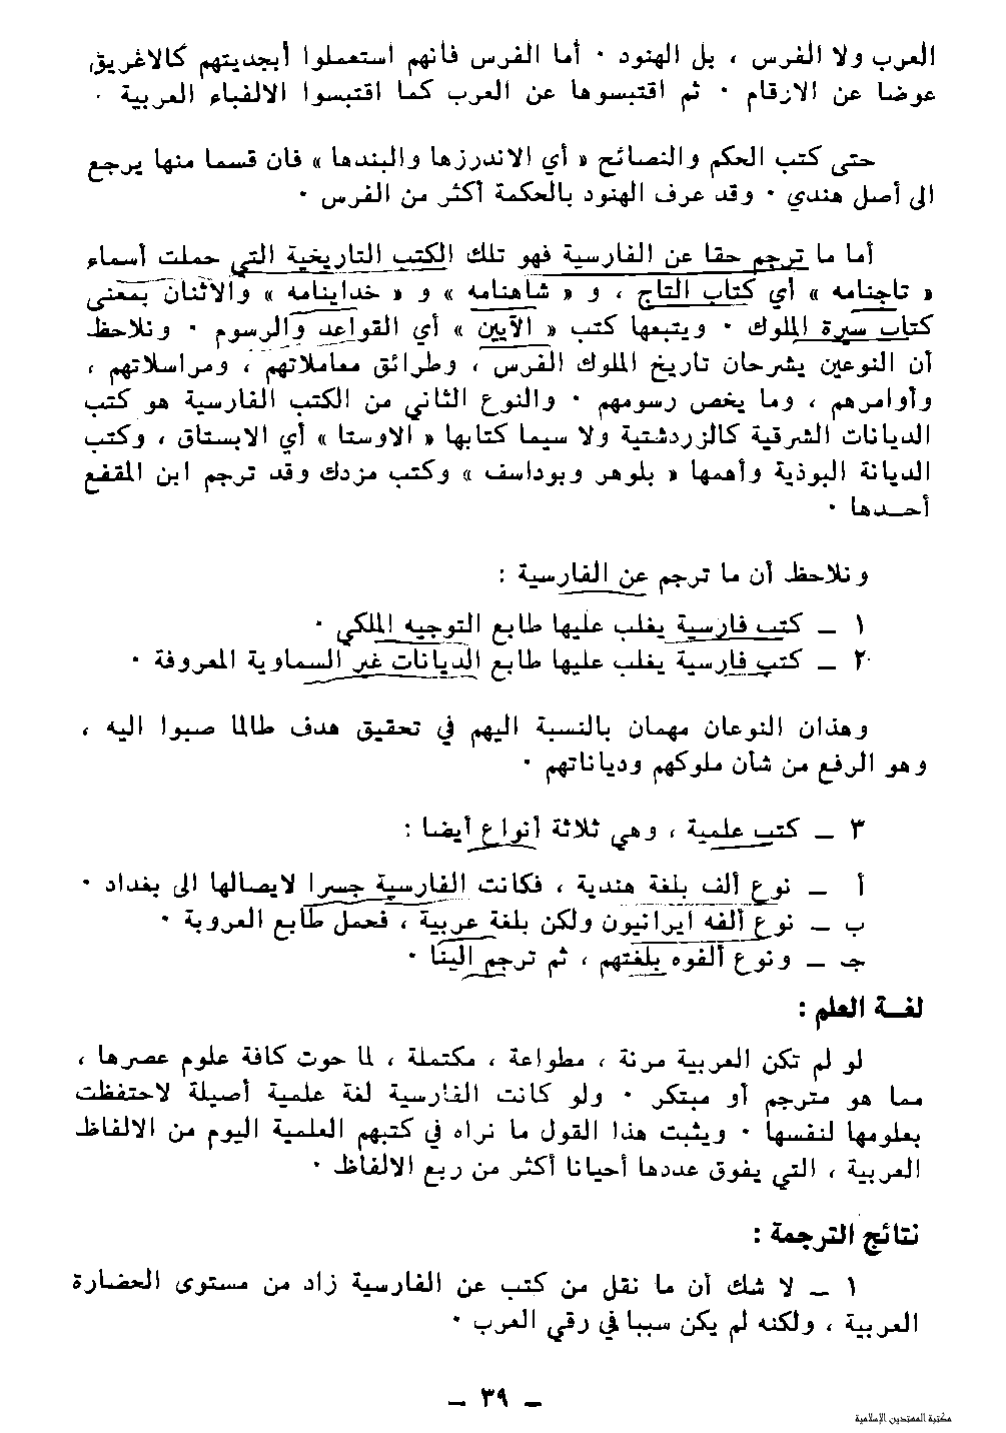 العرب ولا الفرس ، بل الهنود · أما الفرس فانهم استعملوا أبجديتهم كالاغريق
عوضا عن الارقام · ثم اقتبسوها عن العرب كما اقتبسوا الالفباء العربية ·
حتى كتب الحكم والنصائح « أي الاندرزها والبندها » فان قسما منها يرجع
الى أصل هندي · وقد عرف الهنود بالحكمة أكثر من الفرس ·
أما ما ترجم حقا عن الفارسية فهو تلك الكتب التاريخية التي حملت أسماء
« تاجنامه » أي كتاب التاج ، و « شاهنامه » و « خداينامه » والاثنان بمعنى
كتاب سيرة الملوك · ويتبعها كتب « الآيين » أي القواعد والرسوم · ونلاحظ
أن النوعين يشرحان تاريخ الملوك الفرس ، وطرائق معاملاتهم ، ومراسلاتهم ،
وأوامرهم ، وما يخص رسومهم · والنوع الثاني من الكتب الفارسية هو كتب
الديانات الشرقية كالزردشتية ولا سيما كتابها « الاوستا » أي الابستاق ، وكتب
الديانة البوذية وأهمها « بلوهر وبوداسف » وكتب مزدك وقد ترجم ابن المقفع
أحدها ·
ونلاحظ أن ما ترجم عن الفارسية :
١ ــ كتب فارسية يغلب عليها طابع التوجيه الملكي ·
٢ ــ كتب فارسية يغلب عليها طابع الديانات غير السماوية المعروفة ·
وهذان النوعان مهمان بالنسبة اليهم في تحقيق هدف طالما صبوا اليه ،
وهو الرفع من شأن ملوكهم ودياناتهم ·
٣ ــ كتب علمية ، وهي ثلاثة أنواع أيضا :
أ ــ نوع ألف بلغة هندية ، فكانت الفارسية جسرا لايصالها الى بغداد ·
ب ــ نوع ألفه ايرانيون ولكن بلغة عربية ، فحمل طابع العروبة ·
جـ ــ ونوع ألفوه بلغتهم ، ثم ترجم الينا ·
لغــة العلم :
لو لم تكن العربية مرنة ، مطواعة ، مكتملة ، لما حوت كافة علوم عصرها ،
مما هو مترجم أو مبتكر · ولو كانت الفارسية لغة علمية أصيلة لاحتفظت
بعلومها لنفسها · ويثبت هذا القول ما نراه في كتبهم العلمية اليوم من الالفاظ
العربية ، التي يفوق عددها أحيانا أكثر من ربع الالفاظ ·
نتائج الترجمة :
١ ــ لا شك أن ما نقل من كتب عن الفارسية زاد من مستوى الحضارة
العربية ، ولكنه لم يكن سببا في رقي العرب ·
ــ ٣٩ ــ
مكتبة المهتدين الإسلامية